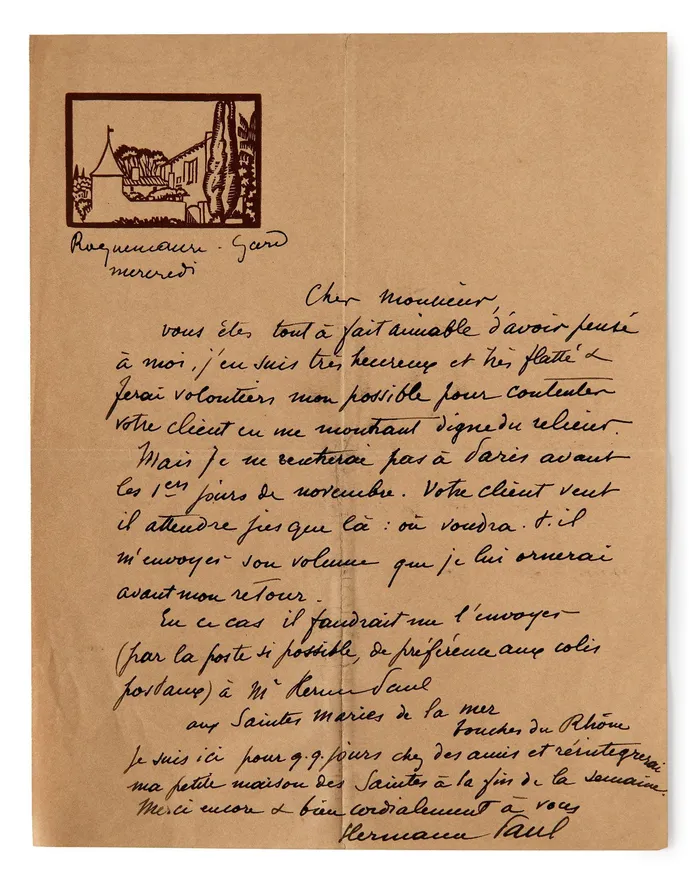 Roquemaure - Gard
mercredi
Cher Monsieur,
vous êtes tout à fait aimable d'avoir pensé
à moi, j'en suis très heureux et très flatté &
ferai volontiers mon possible pour contenter
votre client en me montrant digne du relieur.
Mais je ne rentrerai pas à Paris avant
les 1ers jours de novembre. Votre client veut
il attendre jusque là : ou voudra-t-il
m'envoyer son volume que je lui ornerai
avant mon retour.
En ce cas il faudrait me l'envoyer
(par la poste si possible, de préférence aux colis
postaux) à Mr Hermann Paul
aux Saintes Maries de la mer
bouches du Rhône
Je suis ici pour q.q. jours chez des amis et réintegrerai
ma petite maison des Saintes à la fin de la semaine.
Merci encore & bien cordialement à vous
Hermann Paul